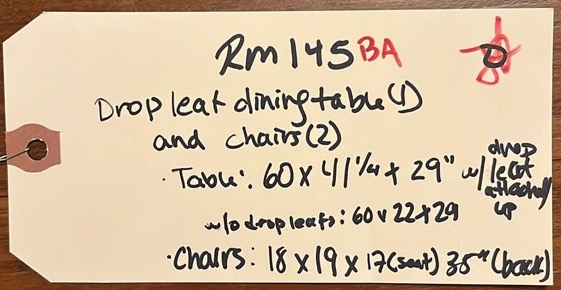 Rm 145 BA
D
Drop leaf dining table (1)
and chairs (2)
· Table: 60 x 41 1/4 x 29" w/ drop leaf attached up
w/o drop leafs: 60 x 22 x 29
· Chairs: 18 x 19 x 17 (seat) 35" (back)